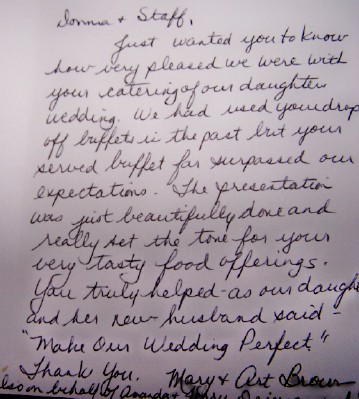 Donna + Staff,
Just wanted you to know
how very pleased we were with
your catering of our daughters
wedding. We had used your drop
off buffets in the past but your
served buffet far surpassed our
expectations. The presentation
was just beautifully done and
really set the tone for your
very tasty food offerings.
You truly helped - as our daugh
and her new husband said -
"Make Our Wedding Perfect"
Thank You. Mary + Art Brown
also on behalf of Amanda +